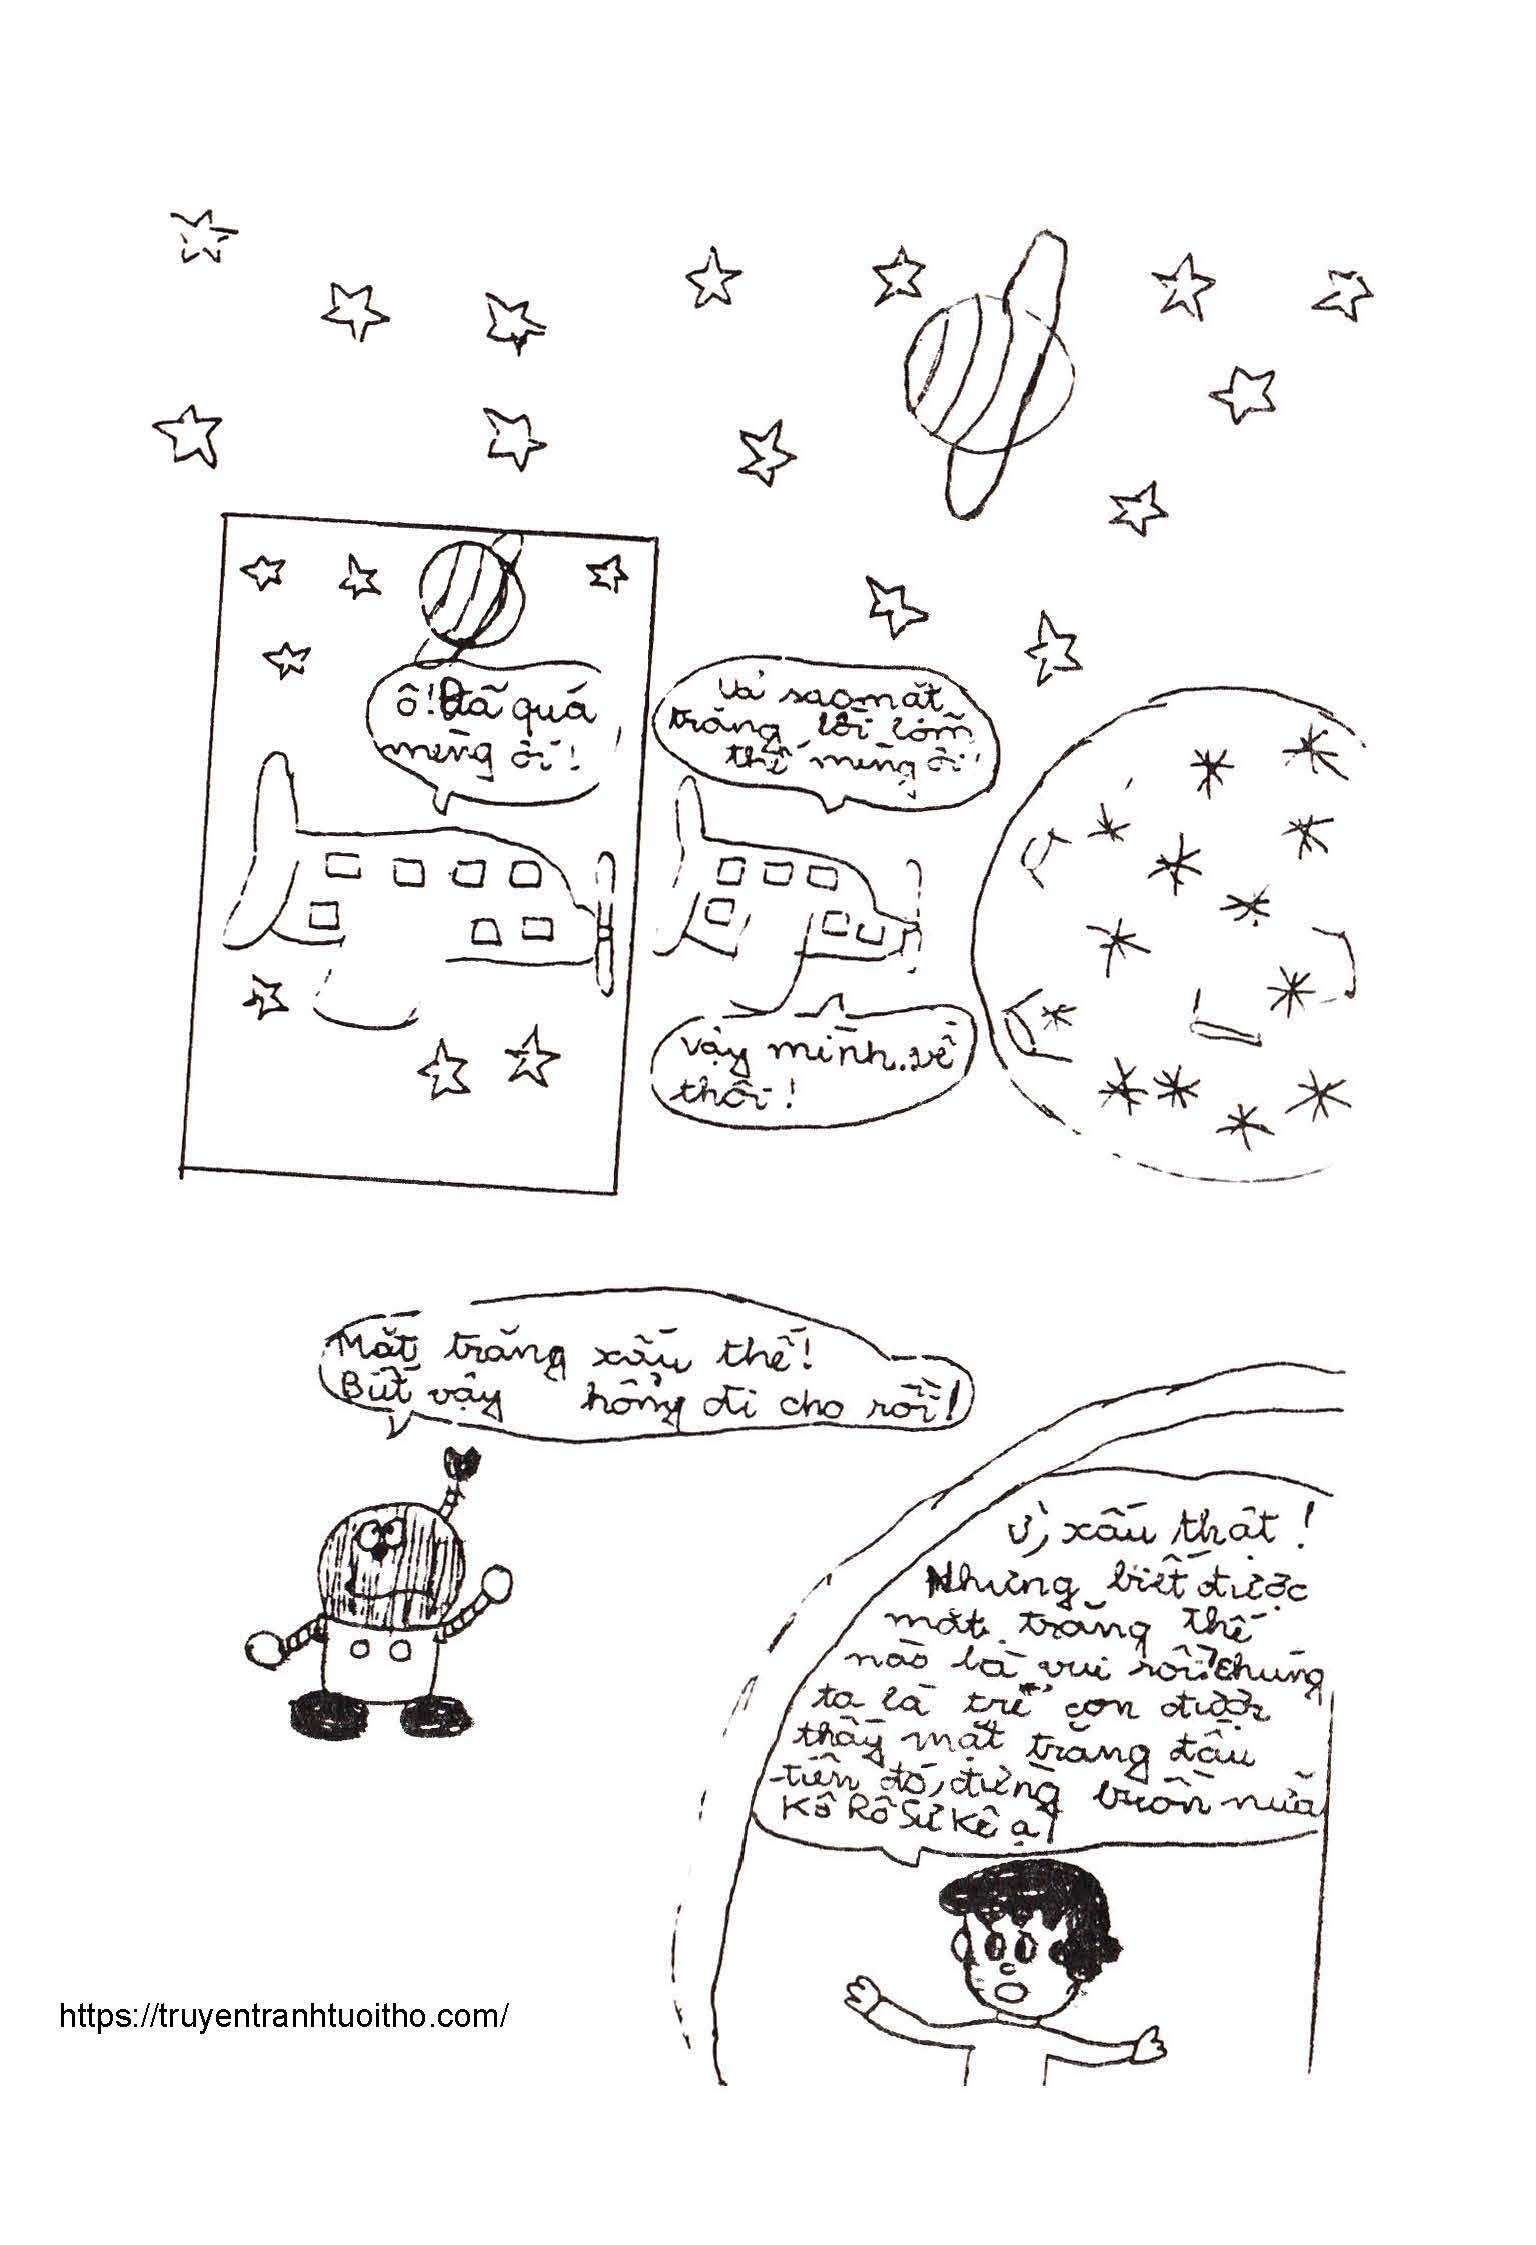 Ô! Đã quá
mèng ơi!
Uả sao mặt
trăng lồi lõm
thế mèng ơi
Vậy mình về
thôi!
Mặt trăng xấu thế!
Biết vậy hổng đi cho rồi!
Ừ, xấu thật!
Nhưng biết được
mặt trăng thế
nào là vui rồi! Chúng
ta là trẻ con được
thấy mặt trăng đầu
tiên đó, đừng buồn nữa
Kô Rô Sư Kê ạ!
https://truyentranhtuoitho.com/